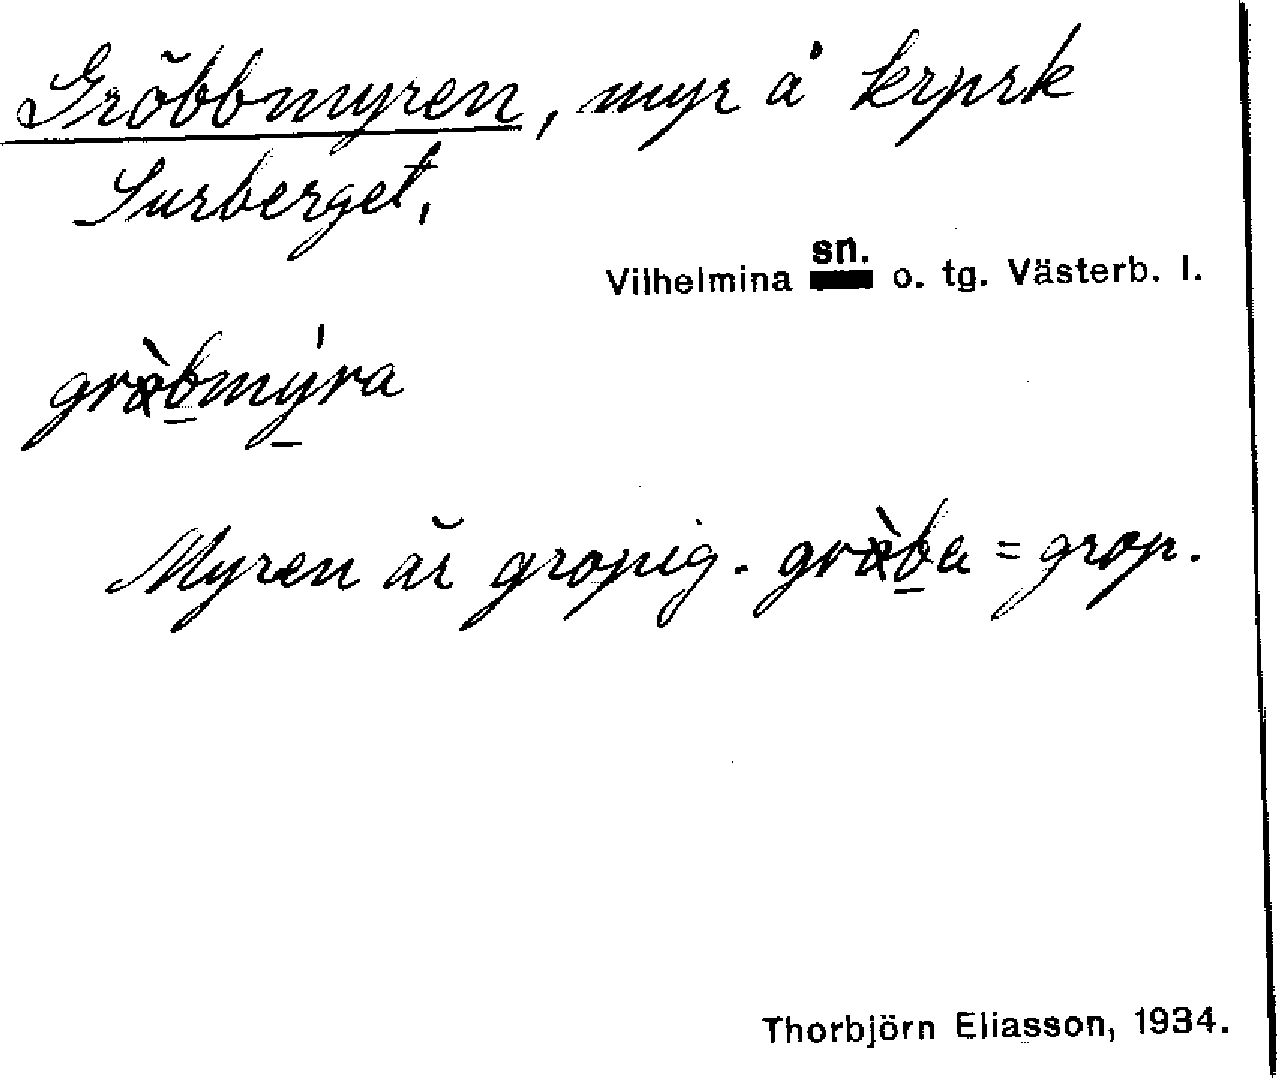 Gröbbmyren, myr å krprk
Surberget,
Vilhelmina sn. o. tg. Västerb. l.
gròbmýra
Myren är gropig. gròba = grop.
Thorbjörn Eliasson, 1934.